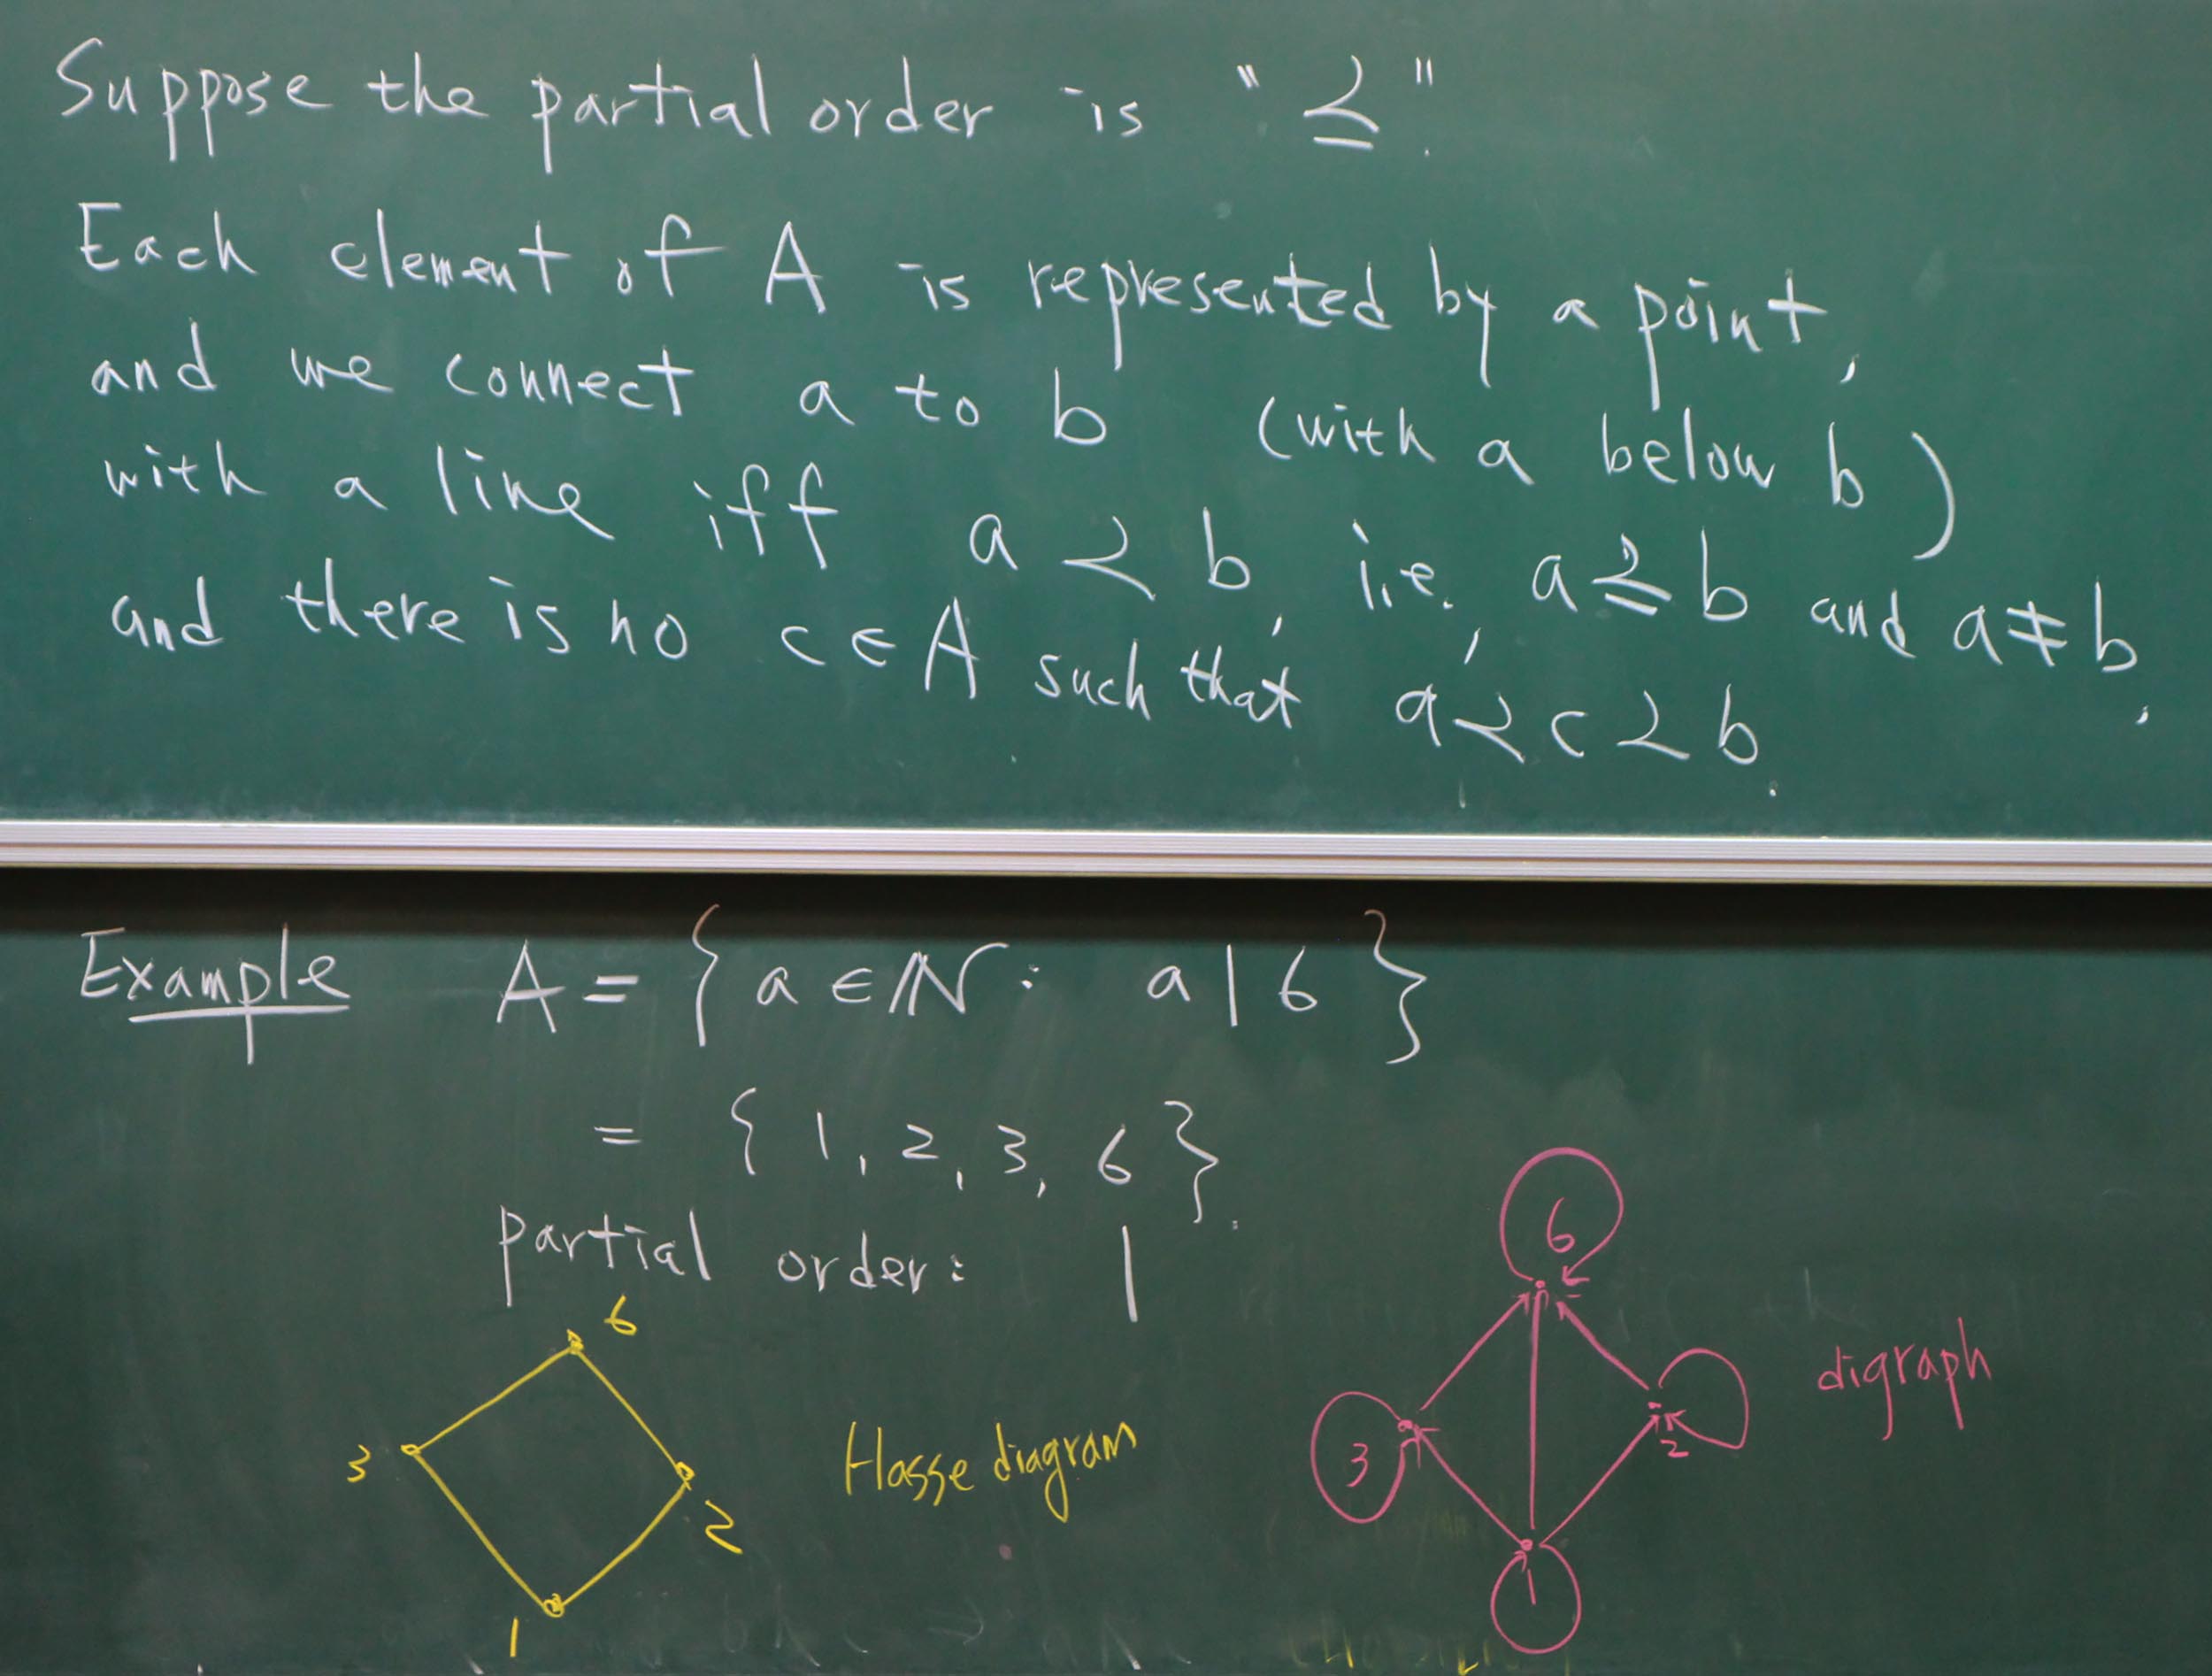 Suppose the partial order is "⪯".
Each element of A is represented by a point,
and we connect a to b (with a below b)
with a line iff a ≺ b, i.e., a ⪯ b and a ≠ b,
and there is no c ∈ A such that a ≺ c ≺ b.
Example A = { a ∈ ℕ : a | 6 }
= { 1, 2, 3, 6 }.
partial order: |
6
3
2
1
Hasse diagram
6
3
2
1
digraph